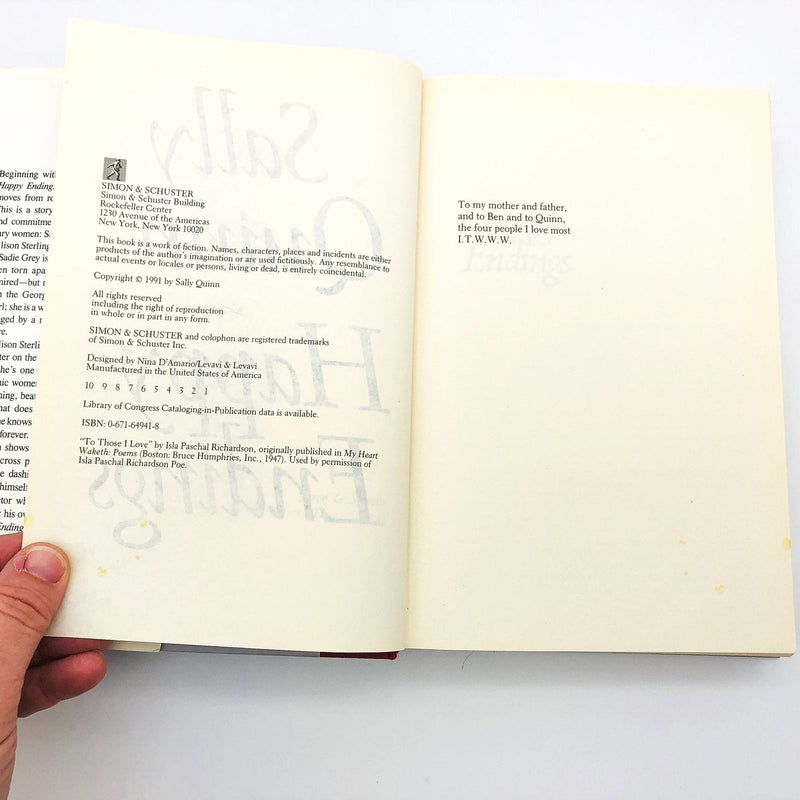 Beginning
Happy Ending
moves from
This is a story
nd commitme
ary women: S
llison Sterling
Sadie Grey is
en torn apa
mired—but
n the Georg
rl; she is a w
ged by a
re.
lison Sterli
ter on the
he's one
nic wome
ning, bea
hat does
e knows
forever.
n shows
cross p
e dashi
himself
ctor wh
his ov
Ending
Sally
Quinn
Happy
Endings
SIMON & SCHUSTER
Simon & Schuster Building
Rockefeller Center
1230 Avenue of the Americas
New York, New York 10020
This book is a work of fiction. Names, characters, places and incidents are either
products of the author's imagination or are used fictitiously. Any resemblance to
actual events or locales or persons, living or dead, is entirely coincidental.
Copyright © 1991 by Sally Quinn
All rights reserved
including the right of reproduction
in whole or in part in any form.
SIMON & SCHUSTER and colophon are registered trademarks
of Simon & Schuster Inc.
Designed by Nina D'Amario/Levavi & Levavi
Manufactured in the United States of America
10 9 8 7 6 5 4 3 2 1
Library of Congress Cataloging-in-Publication data is available.
ISBN: 0-671-64941-8
"To Those I Love" by Isla Paschal Richardson, originally published in My Heart
Waketh: Poems (Boston: Bruce Humphries, Inc., 1947). Used by permission of
Isla Paschal Richardson Poe.
To my mother and father,
and to Ben and to Quinn,
the four people I love most
I.T.W.W.W.
Endings